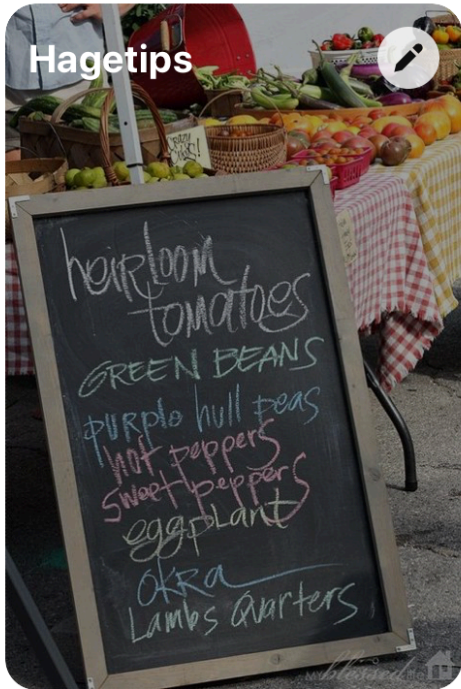 Hagetips
CRAZY
CUKES!
heirloom
tomatoes
GREEN BEANS
purple hull peas
hot peppers
sweet peppers
eggplant
OKRA
Lambs Quarters
blessed